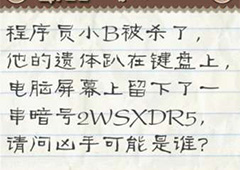 程序员小B被杀了，
他的遗体趴在键盘上，
电脑屏幕上留下了一
串暗号2WSXDR5，
请问凶手可能是谁？